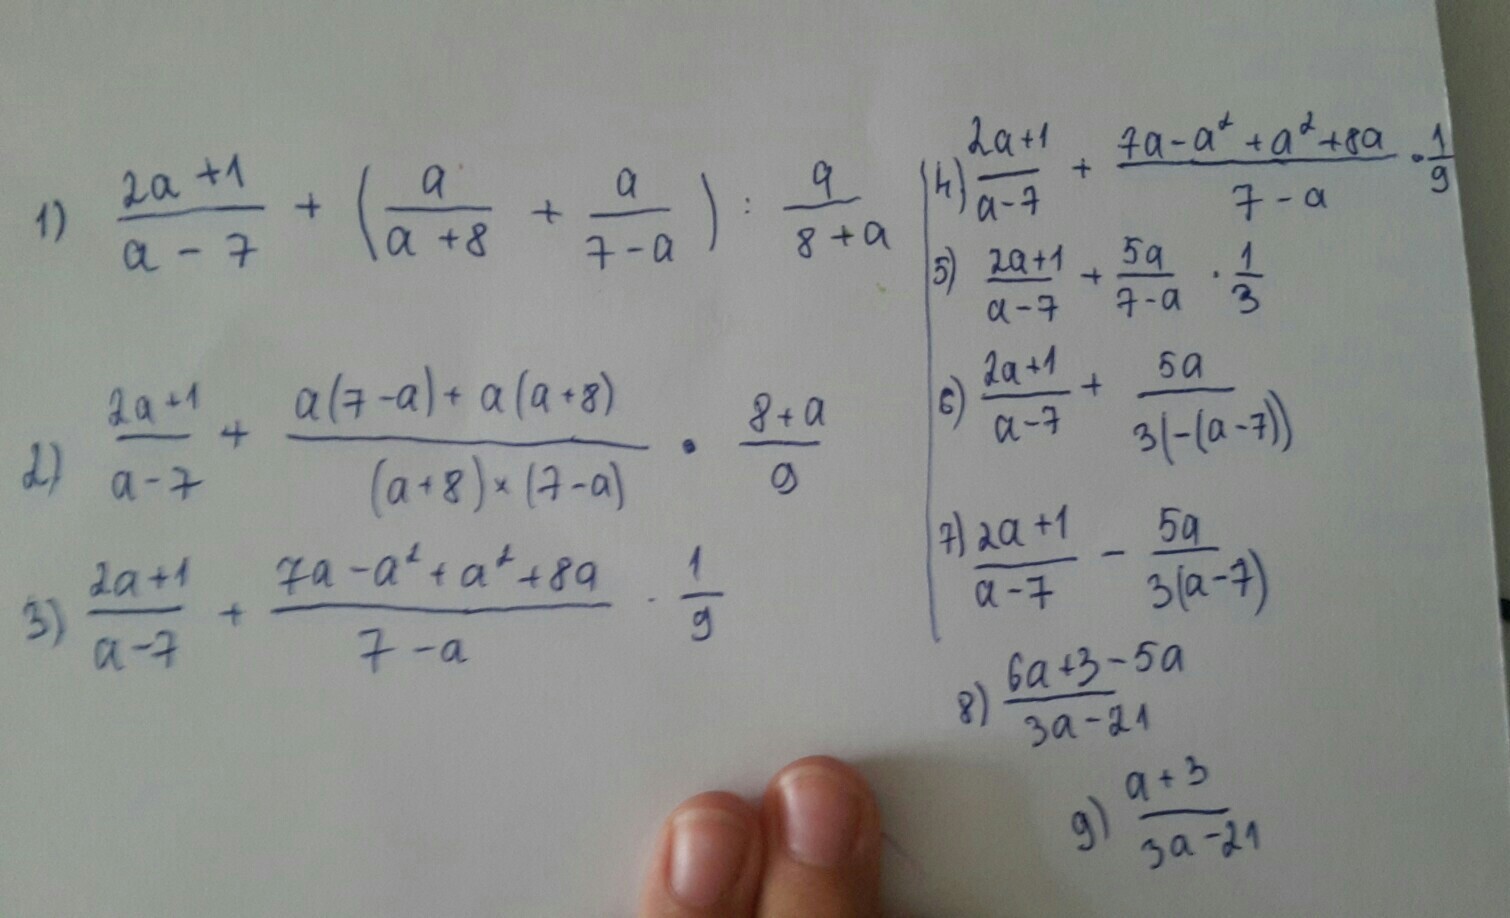 1) \frac{2a+1}{a-7} + (\frac{a}{a+8} + \frac{a}{7-a}) : \frac{9}{8+a}
2) \frac{2a+1}{a-7} + \frac{a(7-a)+a(a+8)}{(a+8)×(7-a)} · \frac{8+a}{9}
3) \frac{2a+1}{a-7} + \frac{7a-a²+a²+8a}{7-a} · \frac{1}{9}
4) \frac{2a+1}{a-7} + \frac{7a-a²+a²+8a}{7-a} · \frac{1}{9}
5) \frac{2a+1}{a-7} + \frac{5a}{7-a} · \frac{1}{3}
6) \frac{2a+1}{a-7} + \frac{5a}{3(-(a-7))}
7) \frac{2a+1}{a-7} - \frac{5a}{3(a-7)}
8) \frac{6a+3-5a}{3a-21}
9) \frac{a+3}{3a-21}